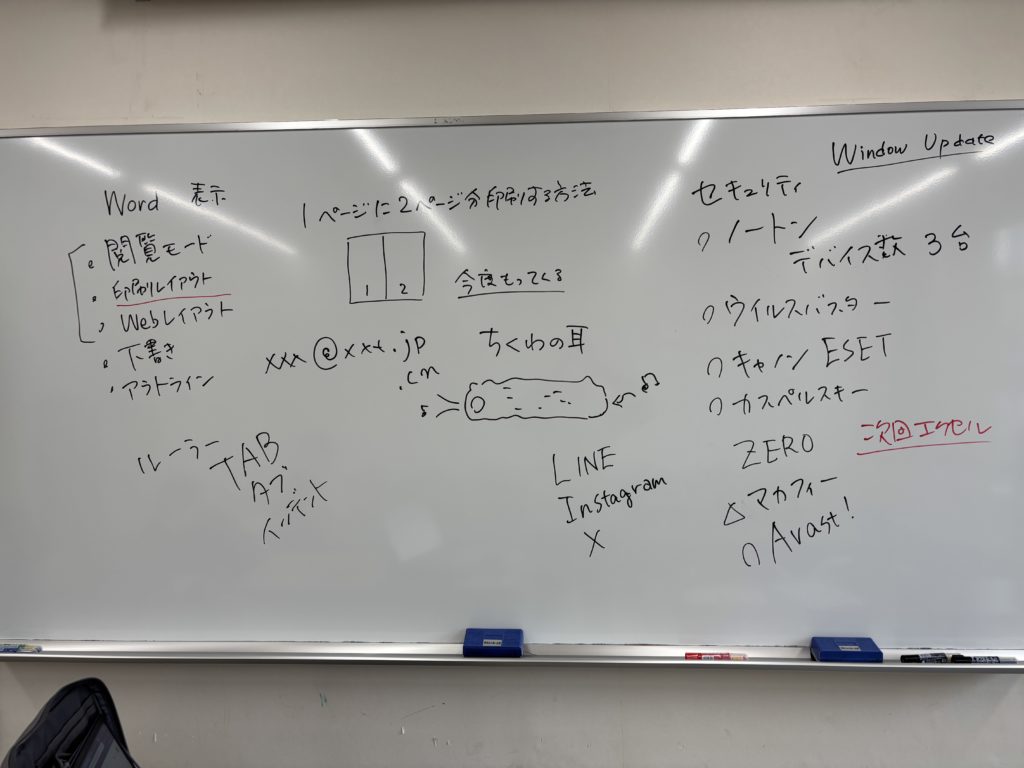 Word 表示
・閲覧モード
・印刷レイアウト
・Webレイアウト
・下書き
・アウトライン
ルーラー
TAB
タブ
インデント
1ページに2ページ分印刷する方法
1 2
今度もってくる
xxx@xxx.jp
.cn
ちくわの耳
♪
♫
LINE
Instagram
X
Window Update
セキュリティ
○ ノートン
デバイス数 3台
○ ウイルスバスター
○ キャノン ESET
○ カスペルスキー
ZERO
△ マカフィー
○ Avast!
次回エクセル